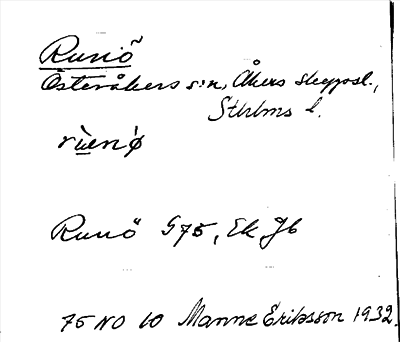 Runö
Österåkers s:n, Åkers skeppsl.,
Sthlms l.
rùenø
Runö G75, Ek Jb
75 NO 10 Manne Eriksson 1932.